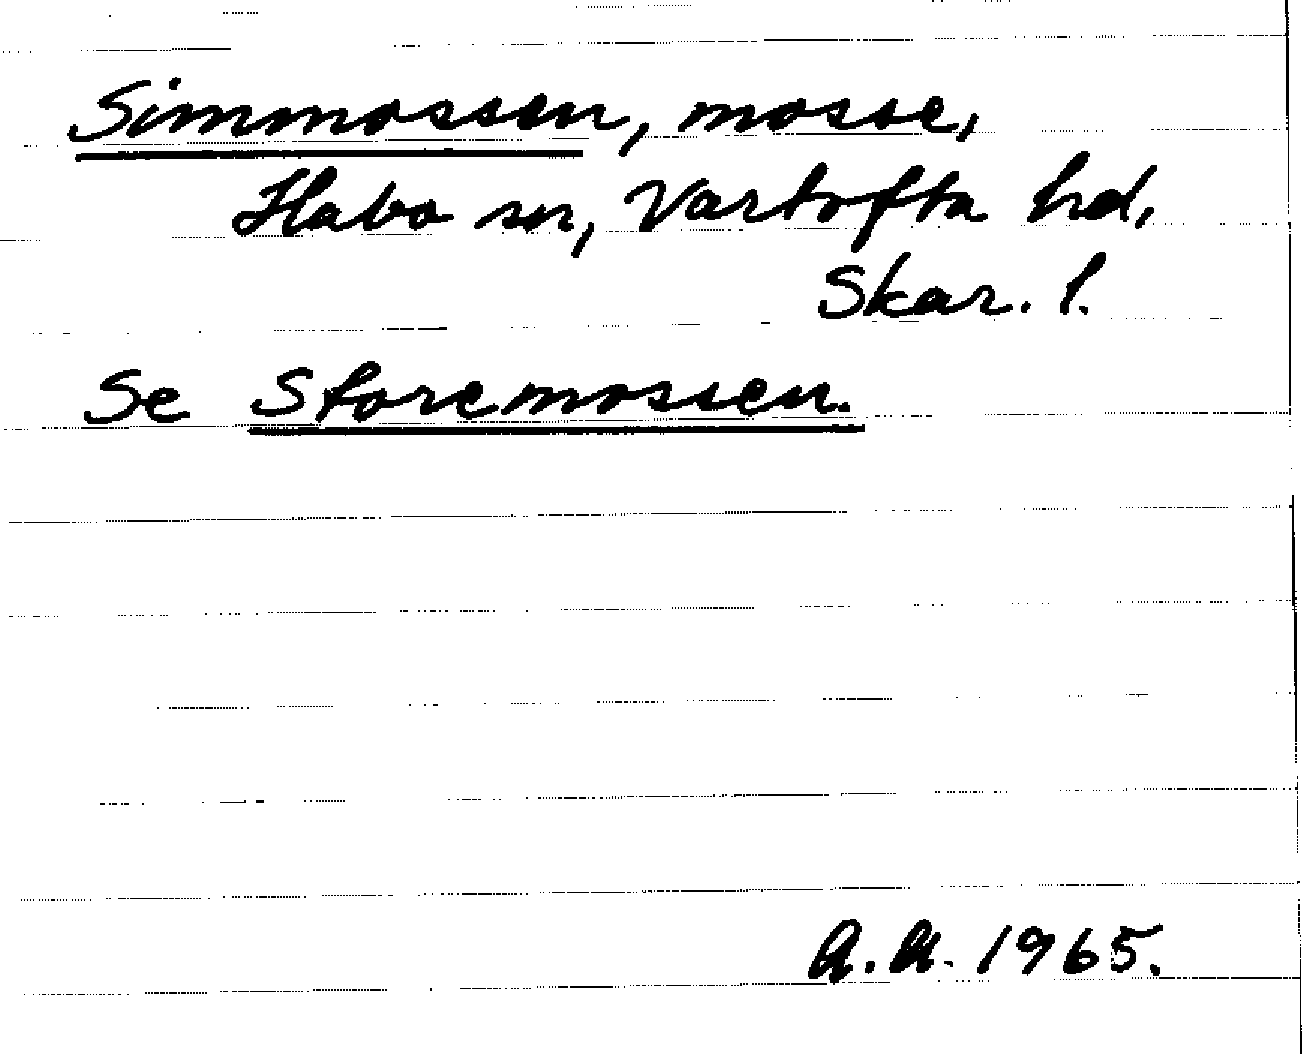 Simmossen, mosse,
Habo sn, Vartofta hd,
Skar. l.
Se Storemossen.
A.A. 1965.